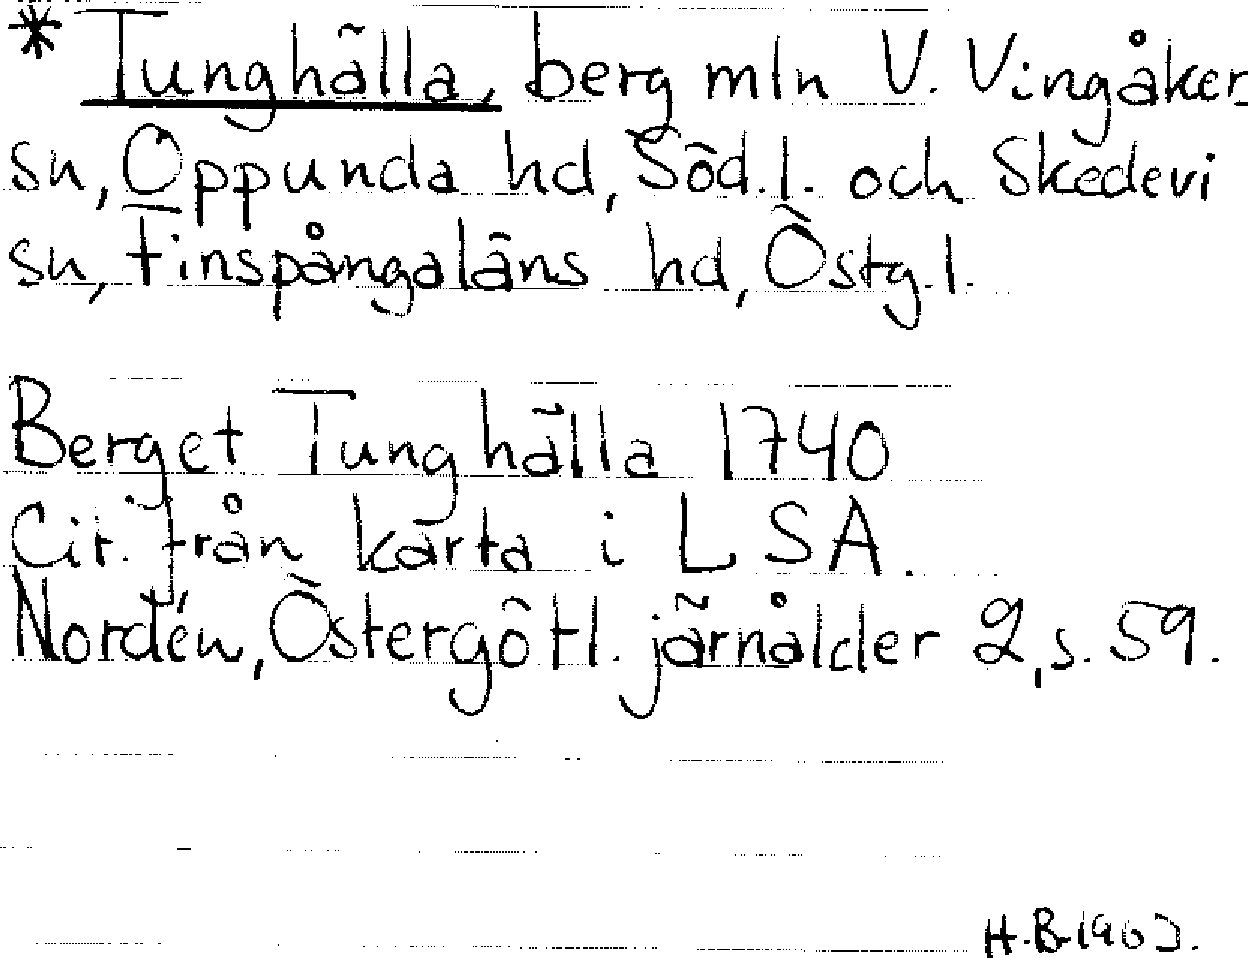 * Tunghälla, berg mln V. Vingåkers
sn, Oppunda hd, Söd.l. och Skedevi
sn, Finspångaläns hd, Östg.l.
Berget Tunghälla 1740
Cit. från karta i LSA.
Nordén, Östergötl. järnålder 2, s. 59.
H.B.